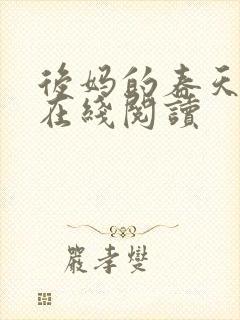 後妈的春天
在綫閱讀
嚴孝燮